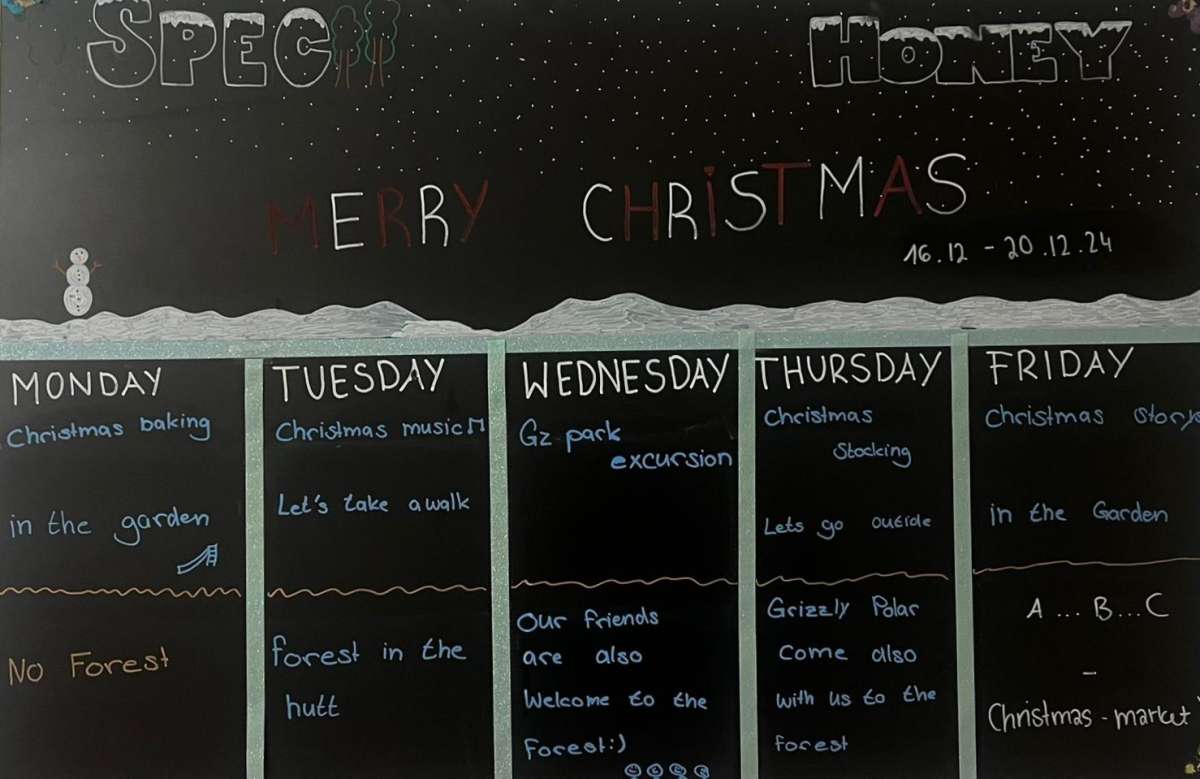 SPEC
HONEY
MERRY CHRISTMAS
16.12 - 20.12.24
MONDAY
Christmas baking
in the garden
No Forest
TUESDAY
Christmas music
Let's take a walk
forest in the
hutt
WEDNESDAY
Gz park
excursion
Our friends
are also
Welcome to the
Forest:)
THURSDAY
Christmas
Stocking
Lets go outide
Grizzly Polar
come also
with us to the
forest
FRIDAY
Christmas story
in the Garden
A ... B ... C
-
Christmas - market